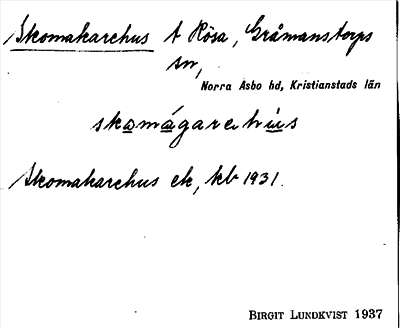 Skomakarehus t Rösa, Gråmanstorps
sn,
Norra Åsbo hd, Kristianstads län
skomágarehùs
Skomakarehus ek, kb 1931.
BIRGIT LUNDKVIST 1937